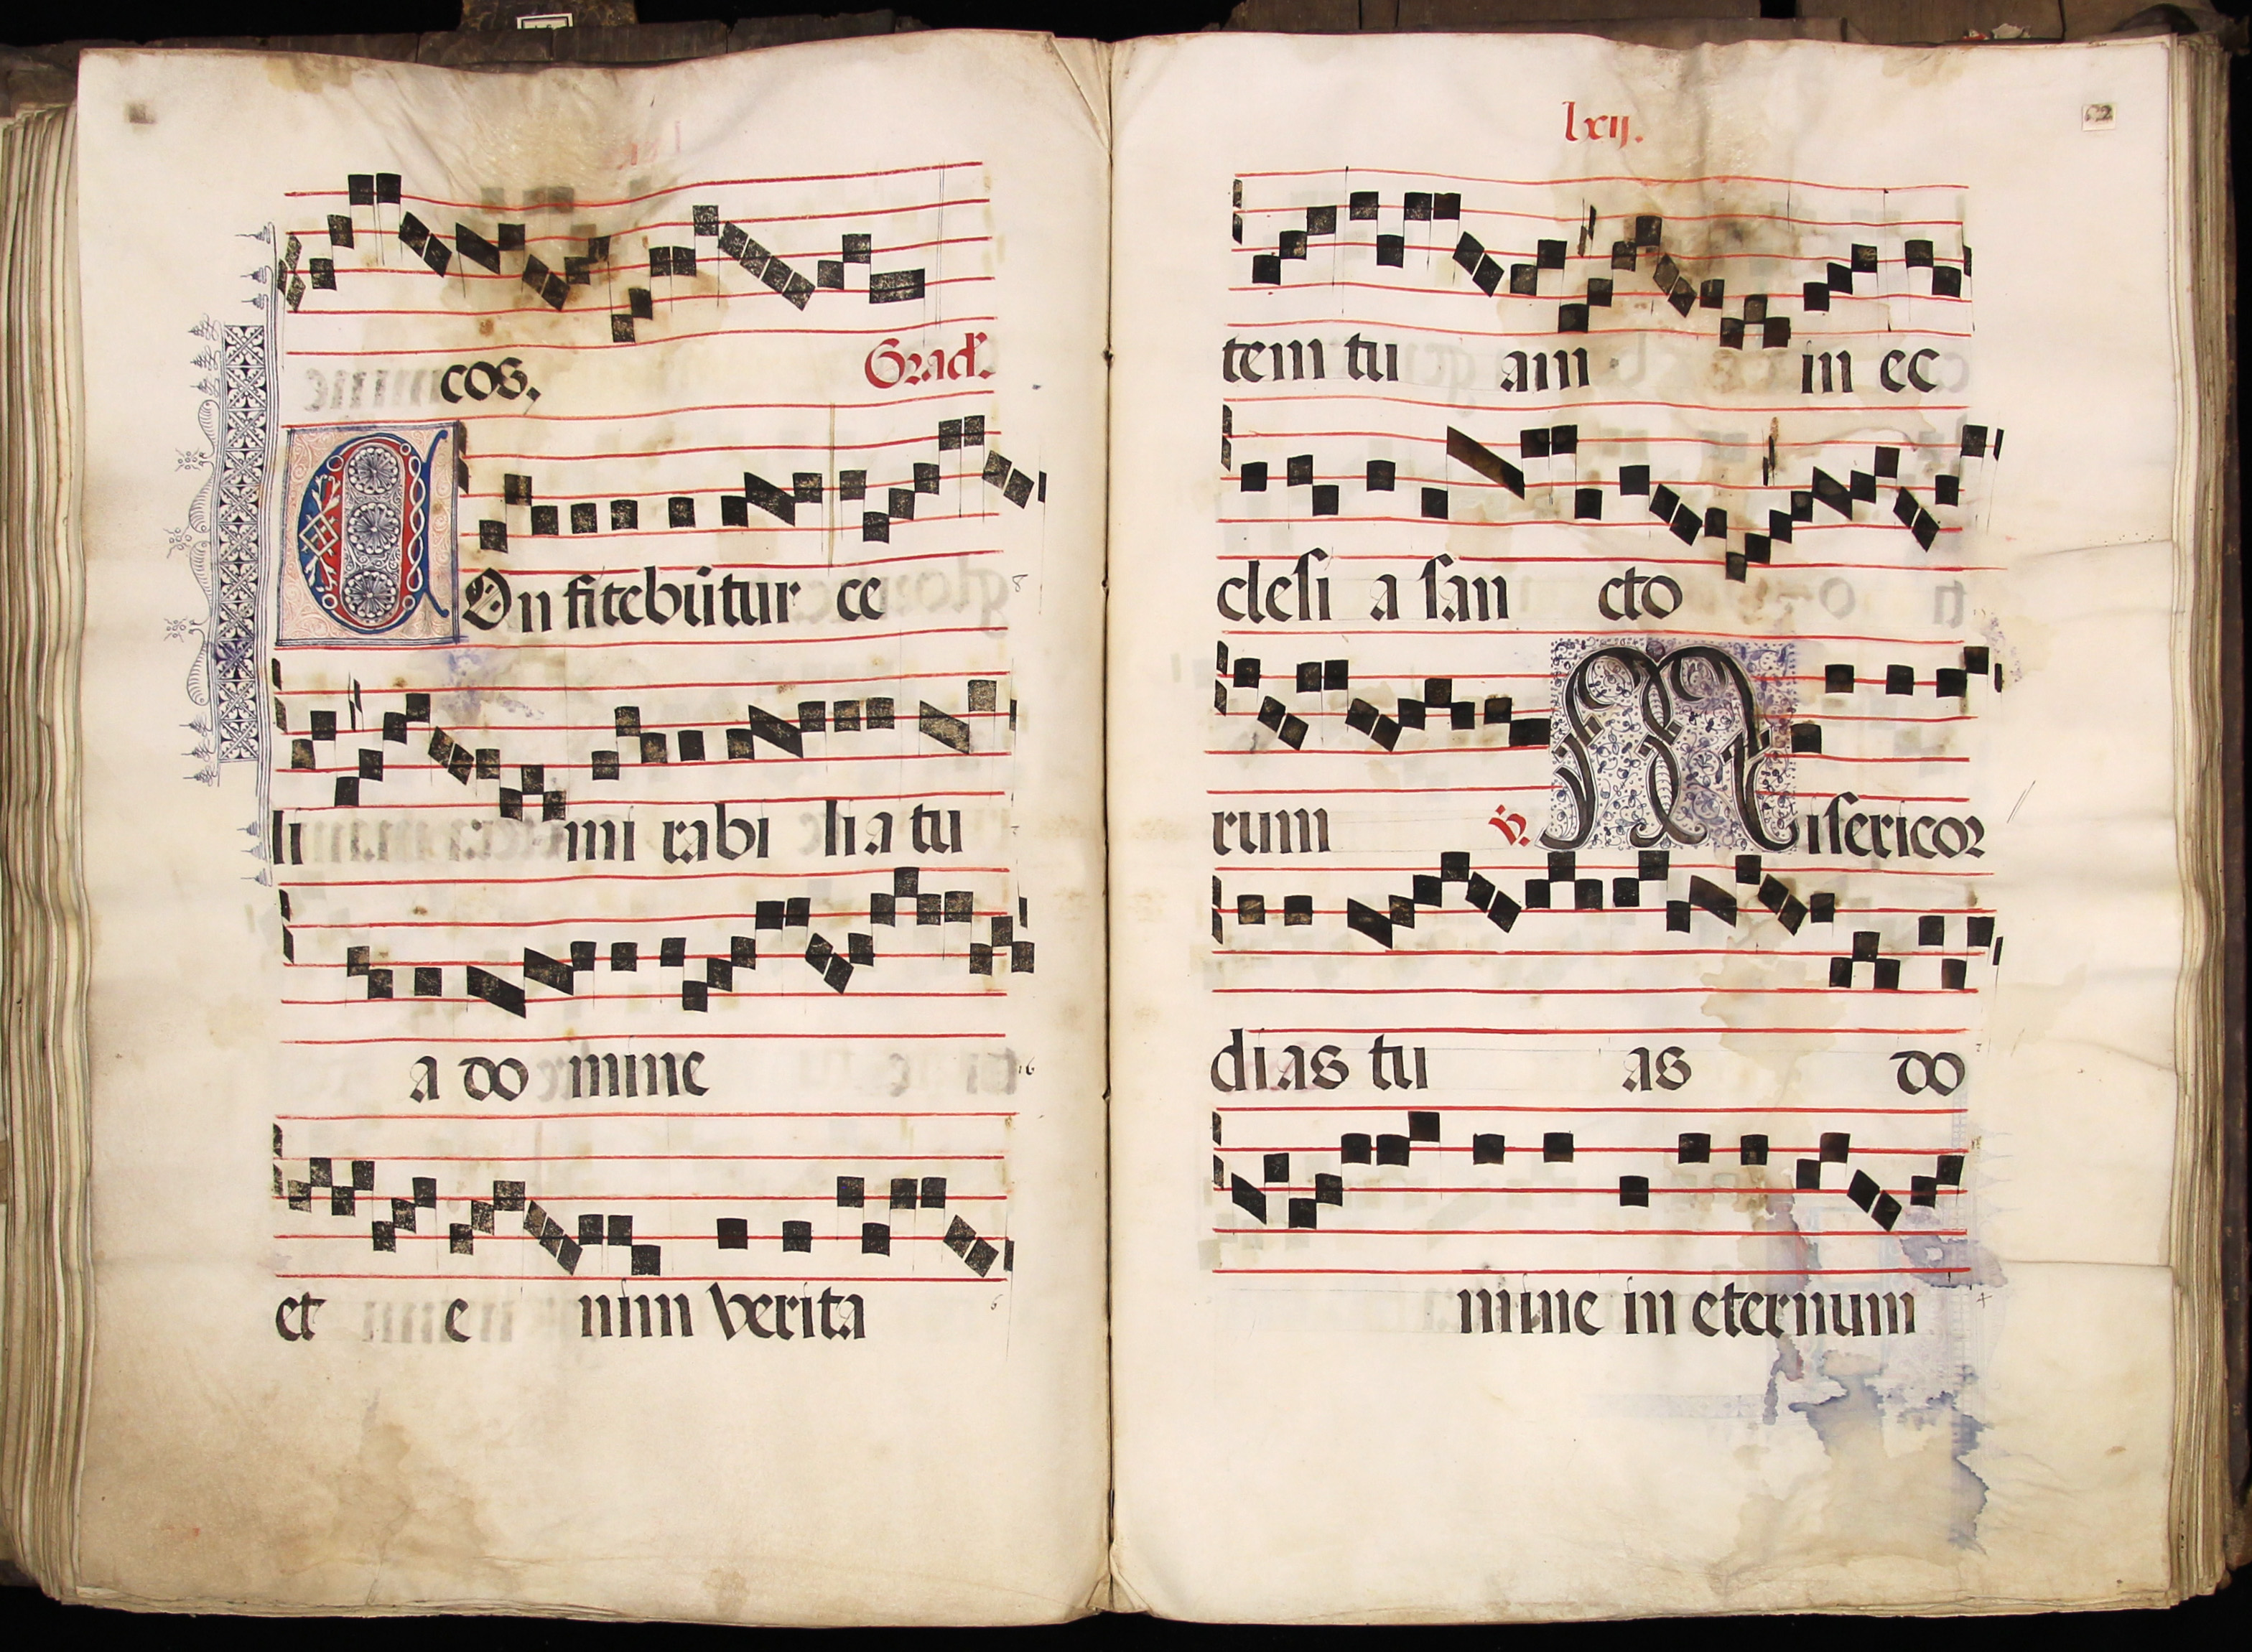 cos. Grad.
COnfitebūtur ce
li mi rabi lia tu
a do mine
et e nim verita
lxij.
tem tu am in ec
clesi a san cto
rum ℣. Misericor
dias tu as do
mine in eternum